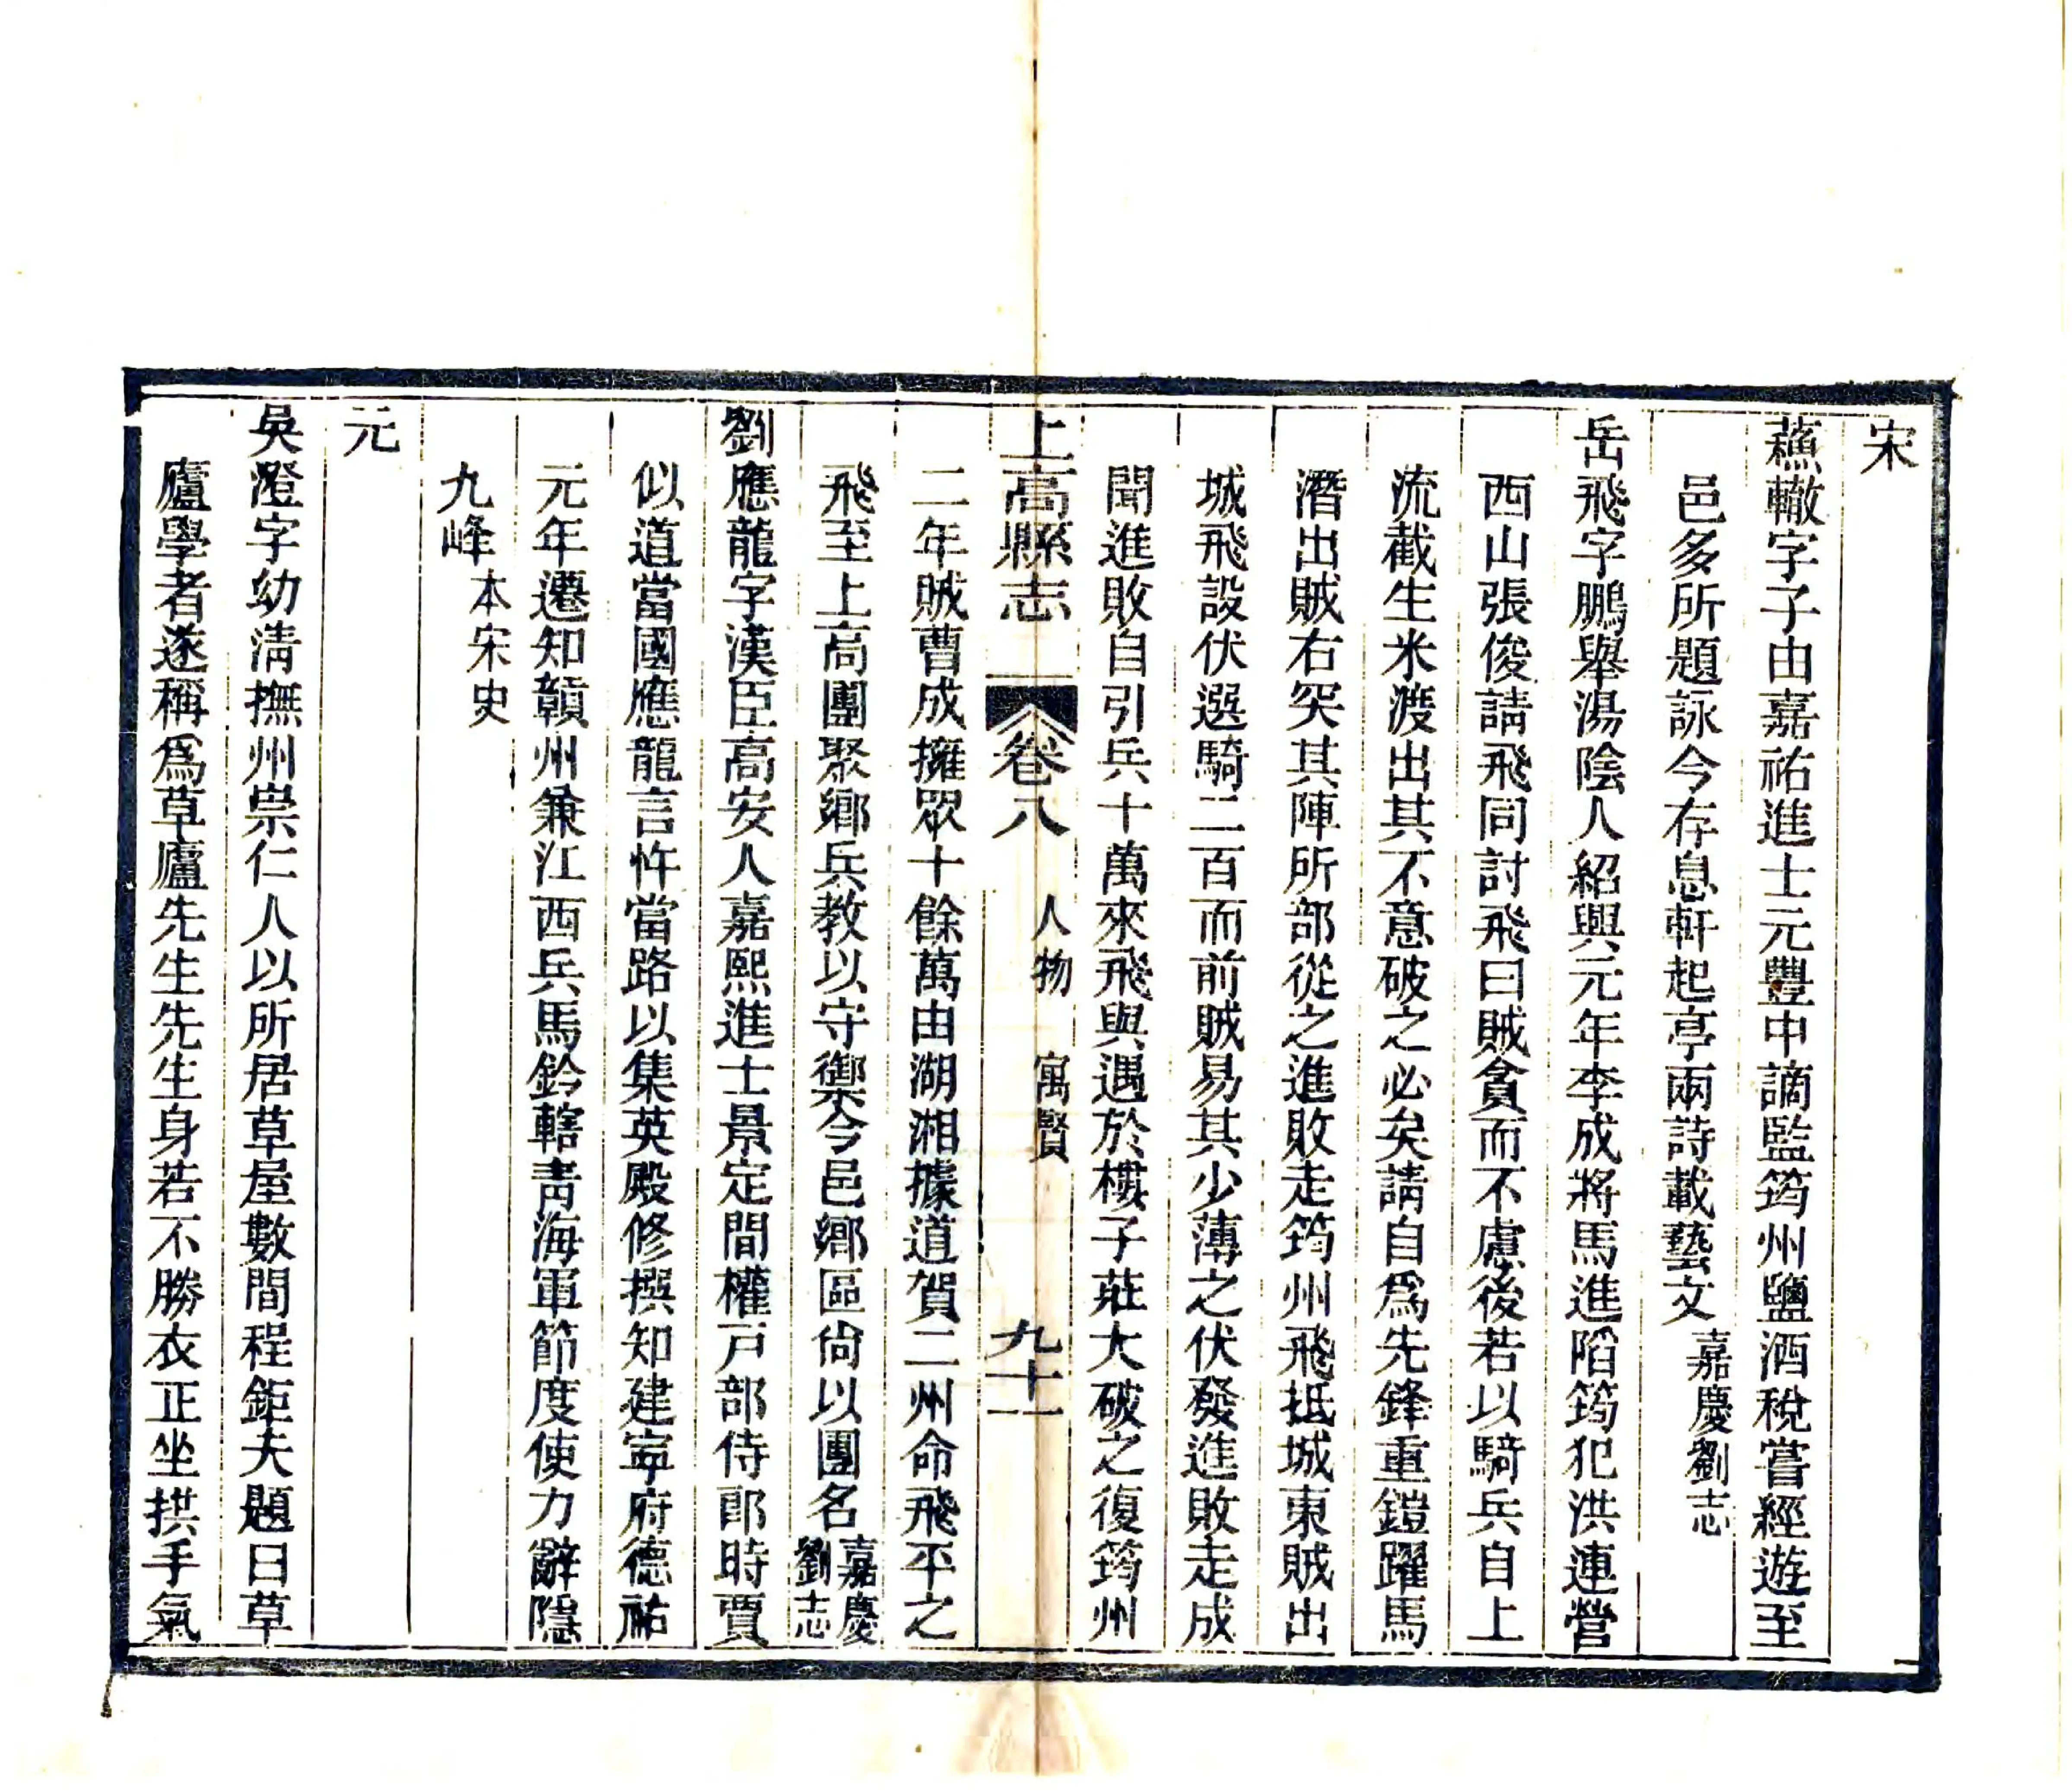 宋
蘓轍字子由嘉祐進士元豐中謫監筠州鹽酒稅嘗經遊至
邑多所題詠今存息軒起亭兩詩載藝文嘉慶劉志
岳飛字鵬舉湯陰人紹興元年李成將馬進陷筠犯洪連營
西山張俊請飛同討飛曰賊貪而不慮後若以騎兵自上
流截生米渡出其不意破之必矣請自爲先鋒重鎧躍馬
潛出賊右突其陣所部從之進敗走筠州飛抵城東賊出
城飛設伏選騎二百而前賊易其少薄之伏發進敗走成
聞進敗自引兵十萬來飛與遇於樓子莊大破之復筠州
上高縣志
卷八
人物
寓賢
九十一
二年賊曹成擁眾十餘萬由湖湘據道賀二州命飛平之
飛至上高團聚鄉兵教以守禦今邑鄉區尙以團名嘉慶
劉志
劉應龍字漢臣高安人嘉熙進士景定間權戸部侍郎時賈
似道當國應龍言忤當路以集英殿修撰知建寧府德祐
元年遷知贛州兼江西兵馬鈐轄靑海軍節度使力辭隱
九峰本宋史
元
吳澄字幼淸撫州崇仁人以所居草屋數間程鉅夫題曰草
廬學者遂稱爲草廬先生先生身若不勝衣正坐拱手氣